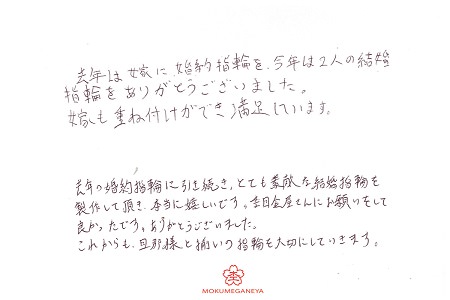 去年は嫁に婚約指輪を、今年は2人の結婚
指輪をありがとうございました。
嫁も重ね付けができ満足しています。
去年の婚約指輪に引き続き、とても素敵な結婚指輪を
製作して頂き、本当に嬉しいです。杢目金屋さんにお願いをして
良かったです。ありがとうございました。
これからも、旦那様と揃いの指輪を大切にしていきます。
MOKUMEGANEYA